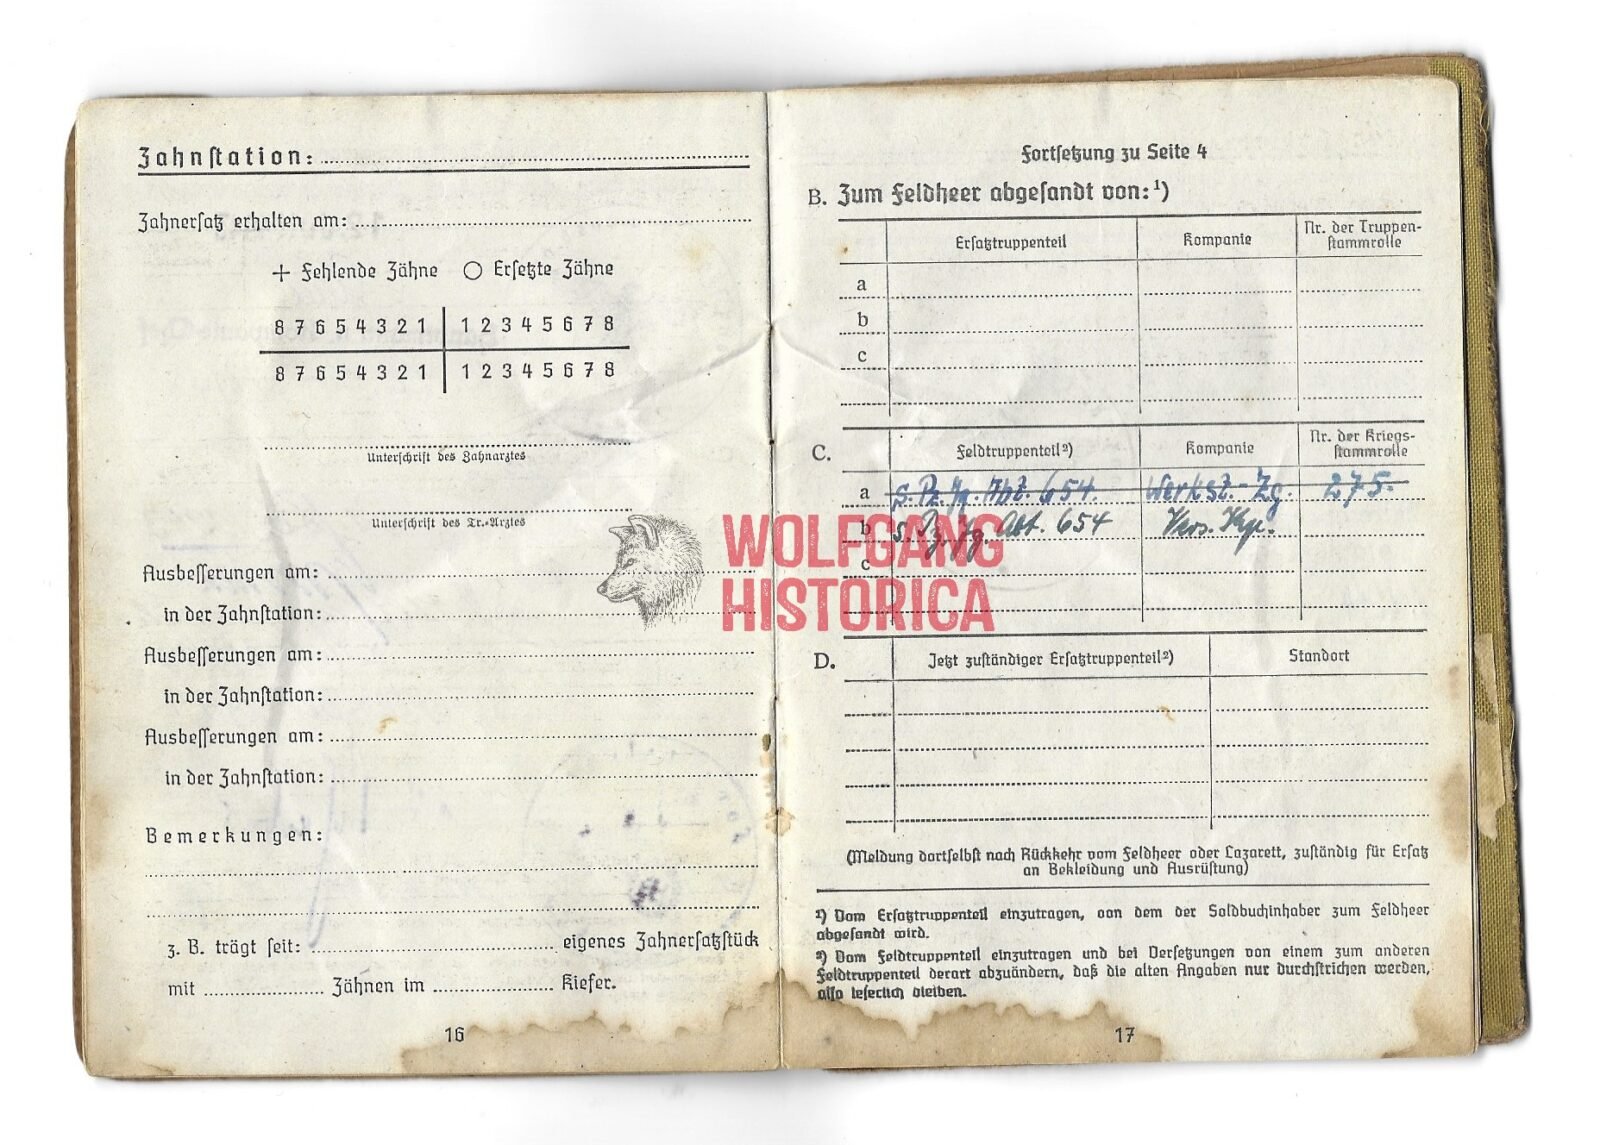 Zahnstation:
Zahnersatz erhalten am:
+ Fehlende Zähne ○ Ersetzte Zähne
8 7 6 5 4 3 2 1 | 1 2 3 4 5 6 7 8
8 7 6 5 4 3 2 1 | 1 2 3 4 5 6 7 8
Unterschrift des Zahnarztes
Unterschrift des Tr.-Arztes
Ausbesserungen am:
in der Zahnstation:
Ausbesserungen am:
in der Zahnstation:
Ausbesserungen am:
in der Zahnstation:
Bemerkungen:
z. B. trägt seit: eigenes Zahnersatzstück
mit Zähnen im Kiefer.
16
Fortsetzung zu Seite 4
B. Zum Feldheer abgesandt von:¹)
Ersatztruppenteil Kompanie Nr. der Truppen-
stammrolle
a
b
c
C. Feldtruppenteil²) Kompanie Nr. der Kriegs-
stammrolle
a s. Pz. Jg. Abt. 654. Werkst.-Zg. 275.
b s. Pz. Jg. Abt. 654 Vers. Kp.
c
WOLFGANG
HISTORICA
D. Jetzt zuständiger Ersatztruppenteil²) Standort
(Meldung dortselbst nach Rückkehr vom Feldheer oder Lazarett, zuständig für Ersatz
an Bekleidung und Ausrüstung)
¹) Vom Ersatztruppenteil einzutragen, von dem der Soldbuchinhaber zum Feldheer
abgesandt wird.
²) Vom Feldtruppenteil einzutragen und bei Versetzungen von einem zum anderen
Feldtruppenteil derart abzuändern, daß die alten Angaben nur durchstrichen werden,
also leserlich bleiben.
17